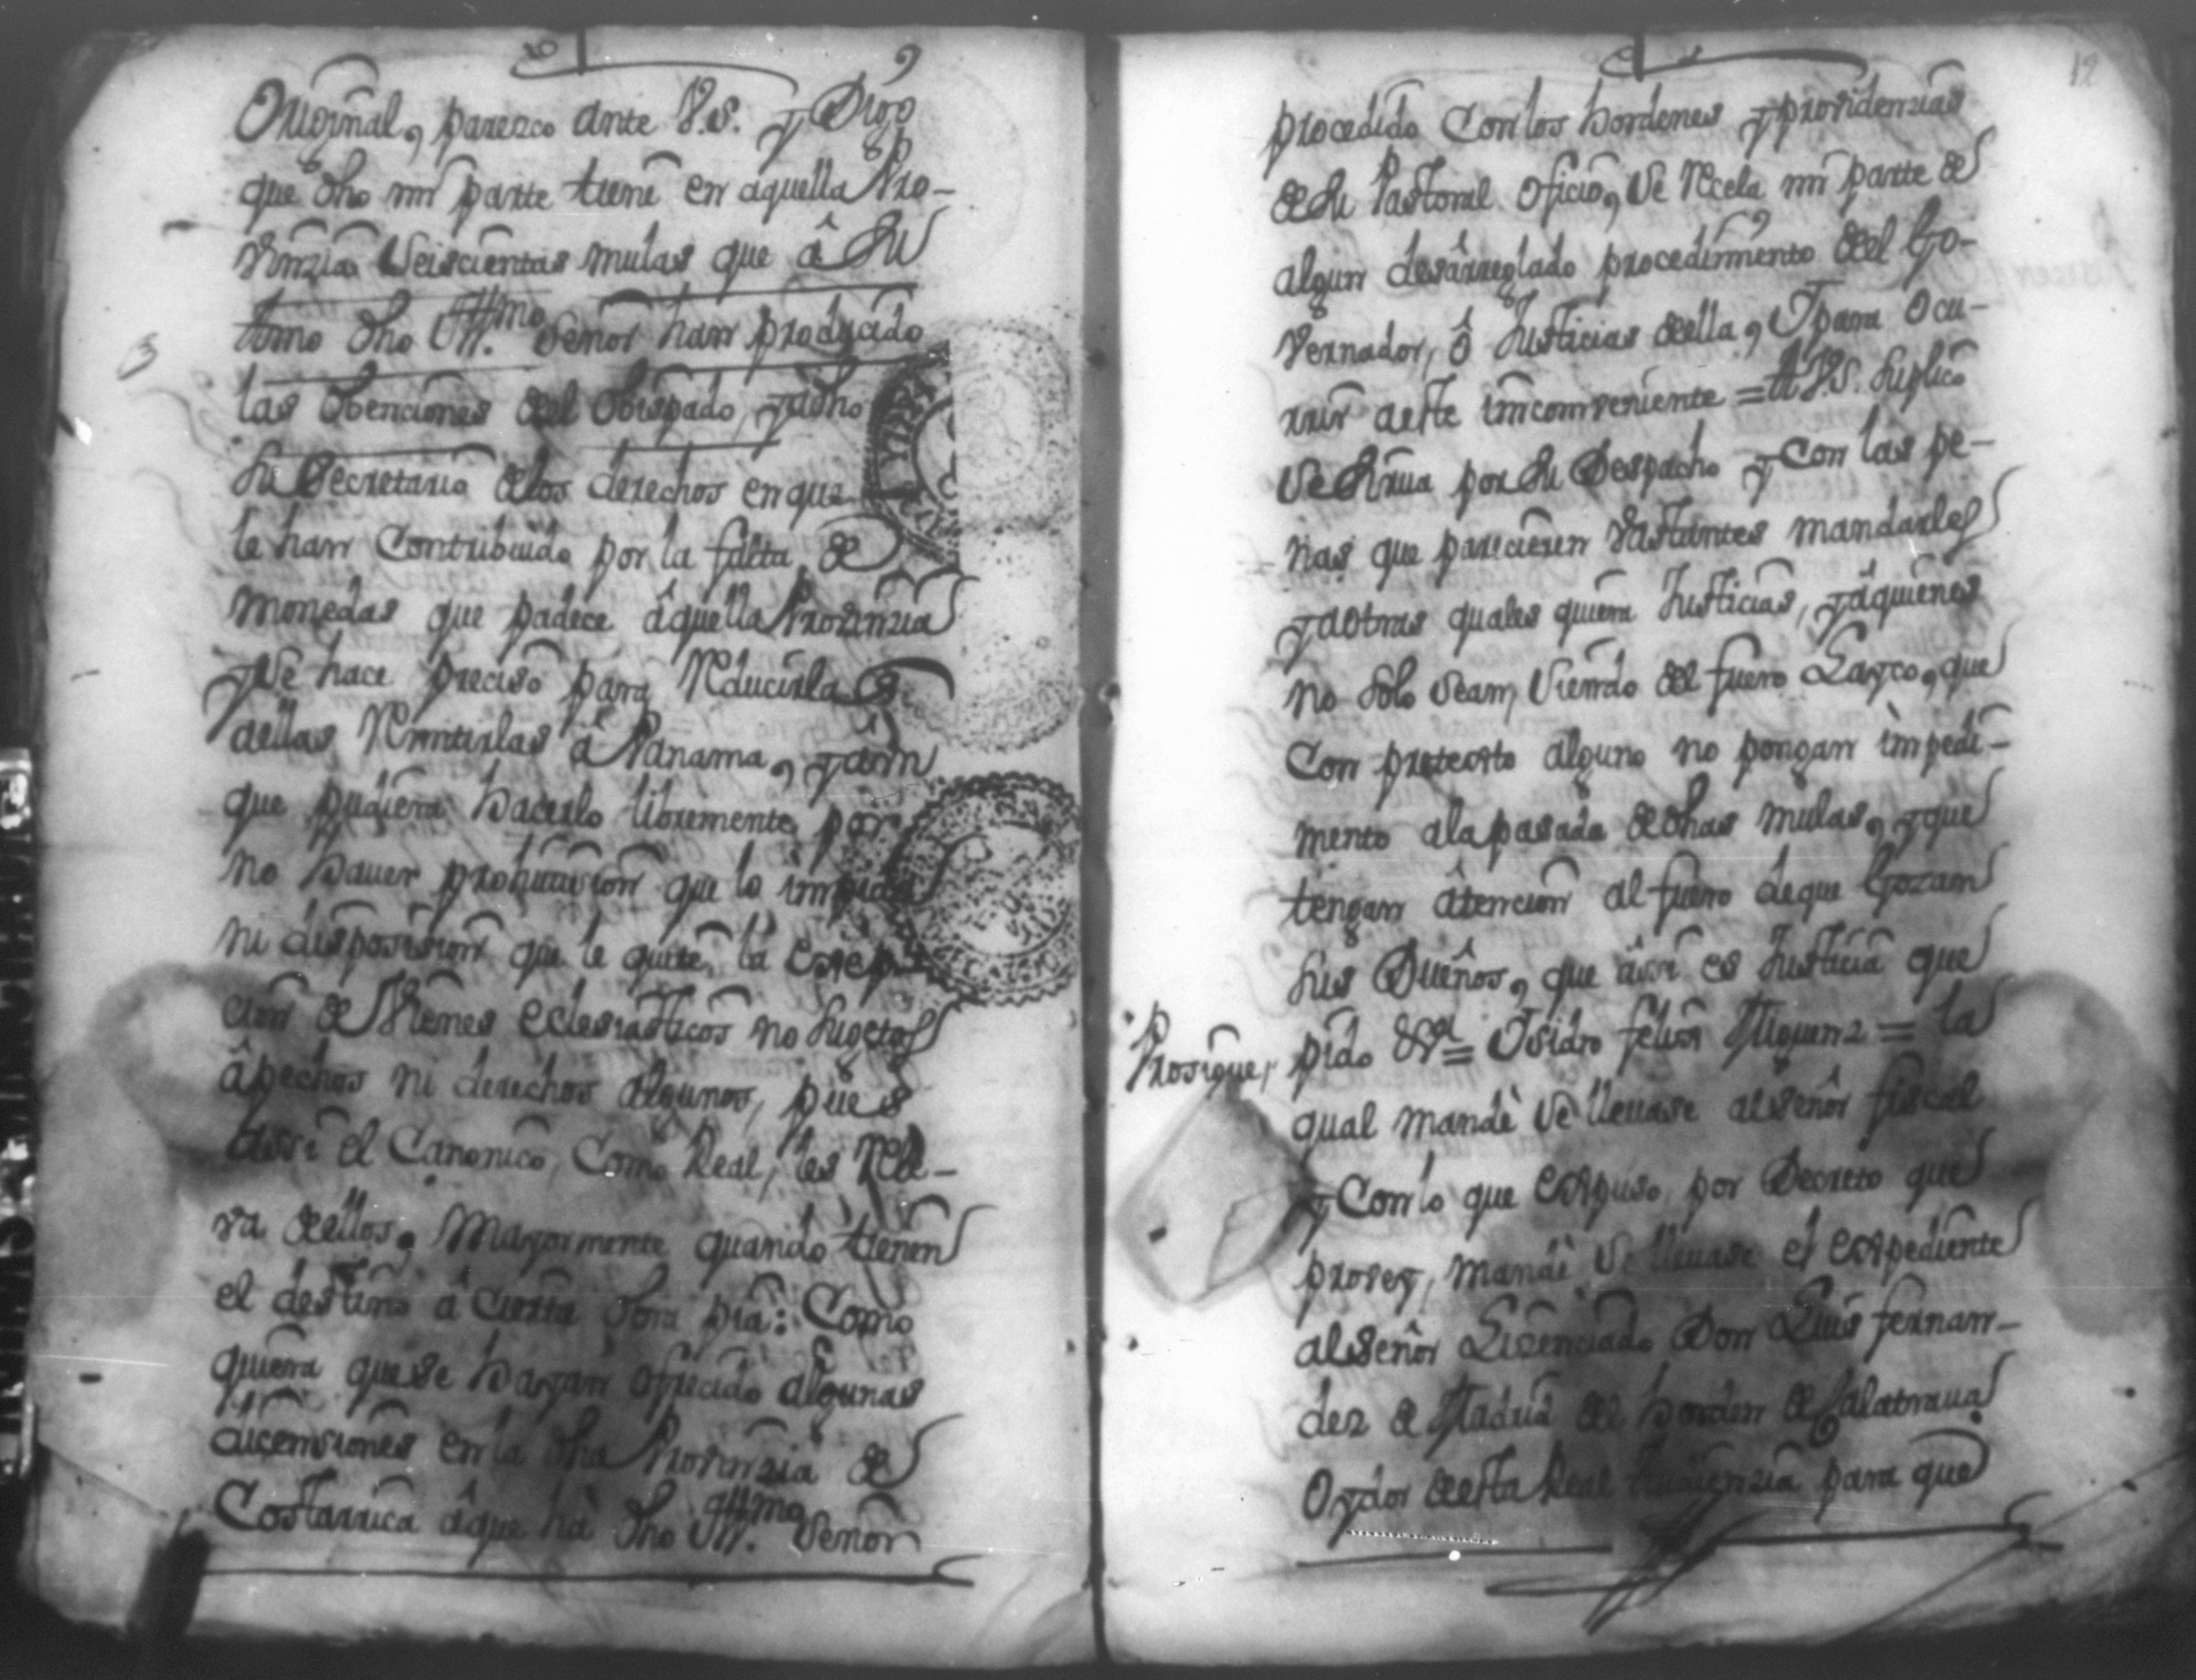 Original, parezco ante V.S. y Digo
que dho mi parte tiene en aquella Pro-
vinzia Seiscientas mulas que â Su
tmo dho Ill.mo Señor han producido
las Obenciones del Obispado, y a dho
Su Secretario de los derechos en que
le han Contribuido por la falta de
monedas que padece âquella Provinzia
y Se hace preciso para Reducirla a
dellas Remitirlas â Panama, y aun
que pudiera hacerlo libremente por
no haver prohiuicion que lo impida
ni disposision que le quite, la Exep-
cion de Vienes eclesiasticos no Sugetos
âpechos ni derechos algunos, pues
assi el Canonico, Como Real, les Rele-
va dellos, Mayormente quando tienen
el destino â Cierta Obra pia: Como
quiera que se hayan ofrecido algunas
dicensiones en la dha Provinzia de
Costarrica âque hà dho Ill.mo Señor
12
procedido Con los hordenes y providenzias
de Su Pastoral Oficio, Se Recela mi parte de
algun desârreglado procedimiento del Go-
vernador, ô Justicias della, y para Ocu-
rrir aeste imcomveniente = A V.S. Suplico
Se Sirua por Su Despacho y Con las pe-
nas que parecieren vastantes mandarles
y a otras quales quiera Justicias, y âquienes
no Solo Sean, Siendo del fuero Layco, que
Con pretexto alguno no pongan impedi-
mento ala pasada de dhas mulas, y que
tengan âtencion al fuero de que Gozan
Sus Dueños, que assi es Justicia que
Prosigue, pido &ª = Ysidro felix Yliguenz = la
qual mandè Se lleuase al Señor fiscal
y Con lo que Expuso, por Decreto que
provey, mandè Se lleuase el Expediente
al Señor Lizenciado Don Luis fernan-
dez de Madrid del horden de Calatraua
Oydor desta Real Audienzia para que